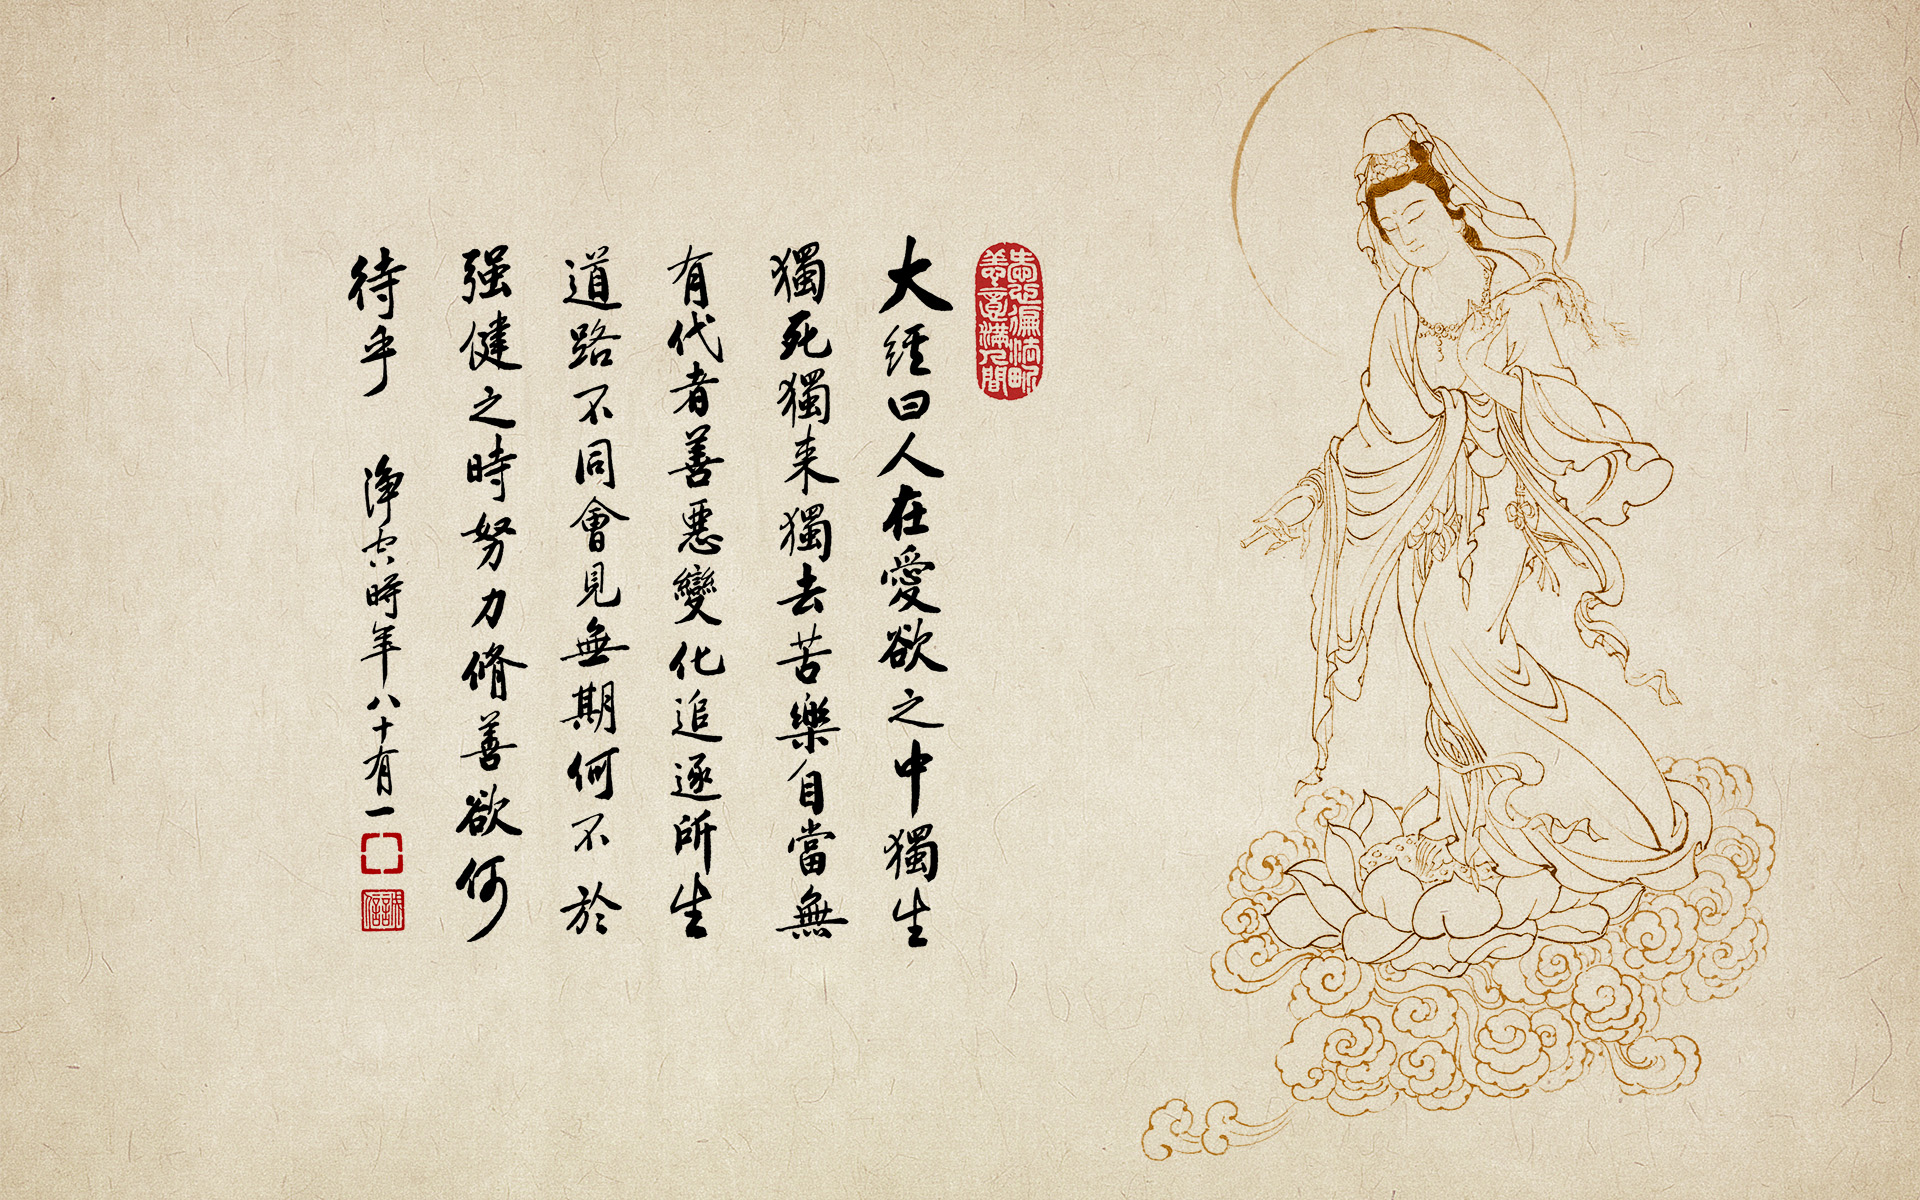 愛心徧法界
善意滿人間
大經曰人在愛欲之中獨生
獨死獨来獨去苦樂自當無
有代者善惡變化追逐所生
道路不同會見無期何不於
强健之時努力脩善欲何
待乎 淨空時年八十有一